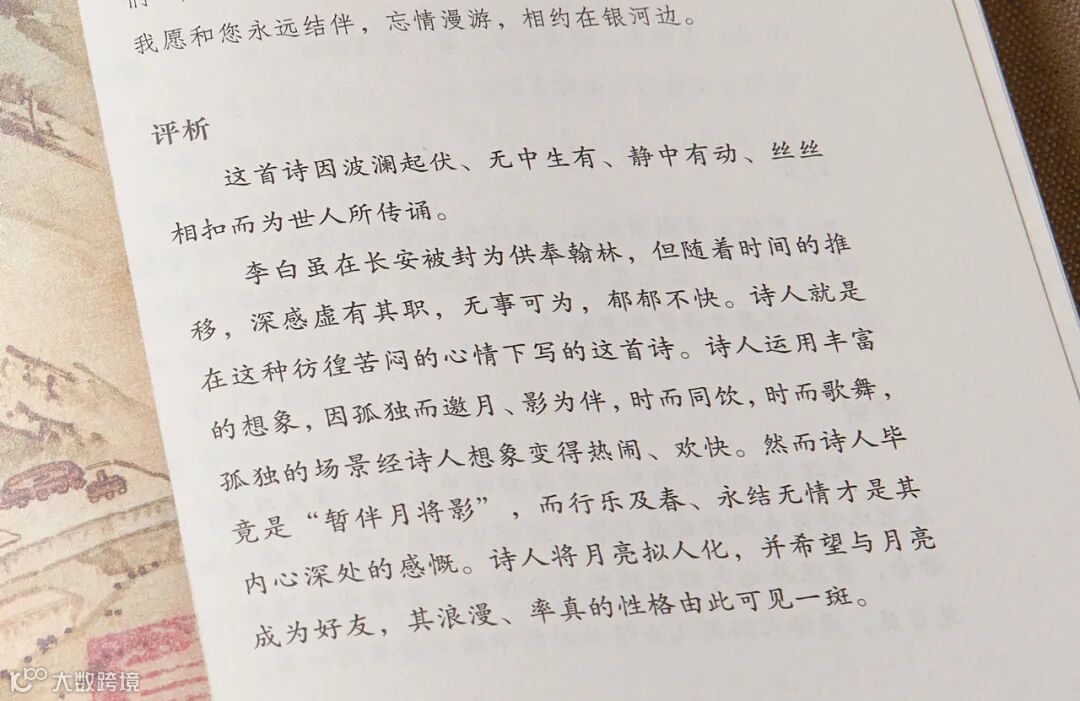 我愿和您永远结伴，忘情漫游，相约在银河边。
评析
这首诗因波澜起伏、无中生有、静中有动、丝丝
相扣而为世人所传诵。
李白虽在长安被封为供奉翰林，但随着时间的推
移，深感虚有其职，无事可为，郁郁不快。诗人就是
在这种彷徨苦闷的心情下写的这首诗。诗人运用丰富
的想象，因孤独而邀月、影为伴，时而同饮，时而歌舞，
孤独的场景经诗人想象变得热闹、欢快。然而诗人毕
竟是“暂伴月将影”，而行乐及春、永结无情才是其
内心深处的感慨。诗人将月亮拟人化，并希望与月亮
成为好友，其浪漫、率真的性格由此可见一斑。
大数跨境